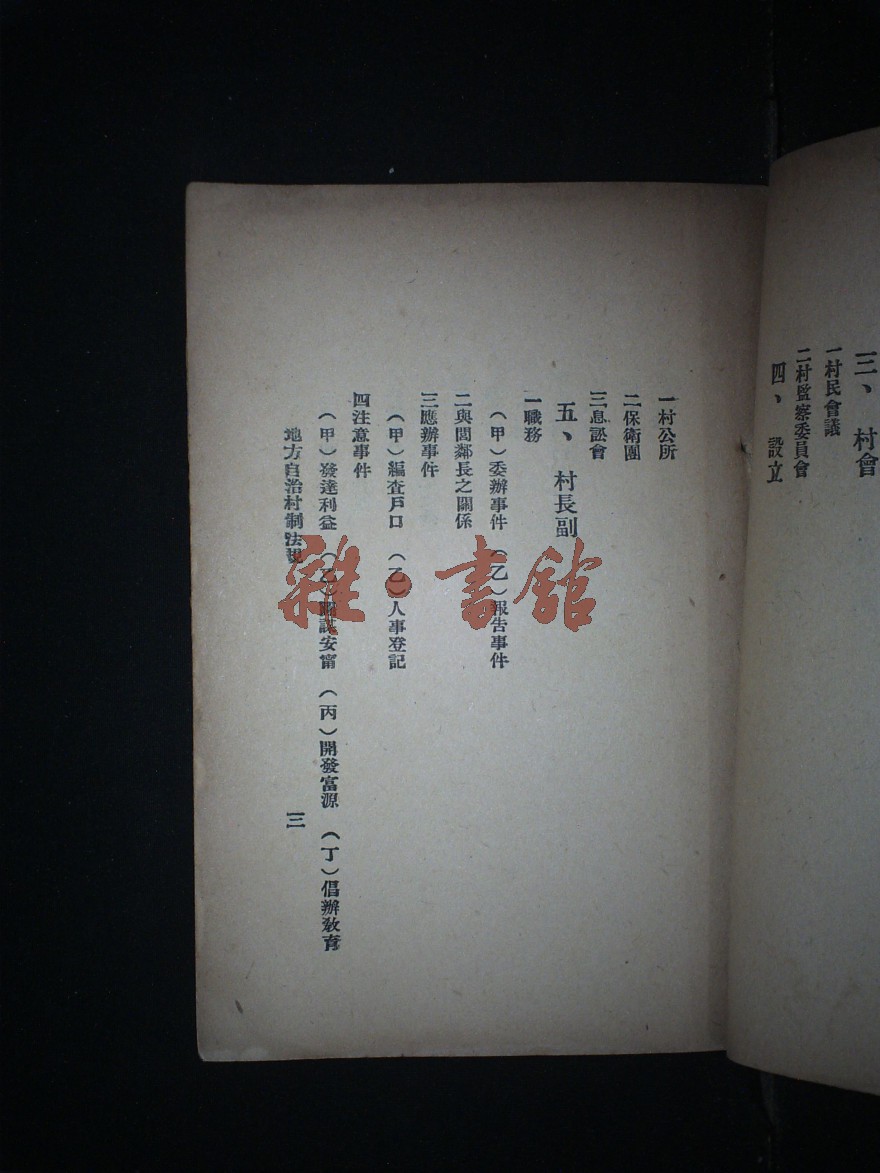 三、村會
一村民會議
二村監察委員會
四、設立
一村公所
二保衛團
三息訟會
五、村長副
一職務
（甲）委辦事件（乙）報告事件
二與閭鄰長之關係
三應辦事件
（甲）編查戶口（乙）人事登記
四注意事件
（甲）發達利益（乙）圖謀安甯（丙）開發富源（丁）倡辦敎育
地方自治村制法規
三
雜·書館